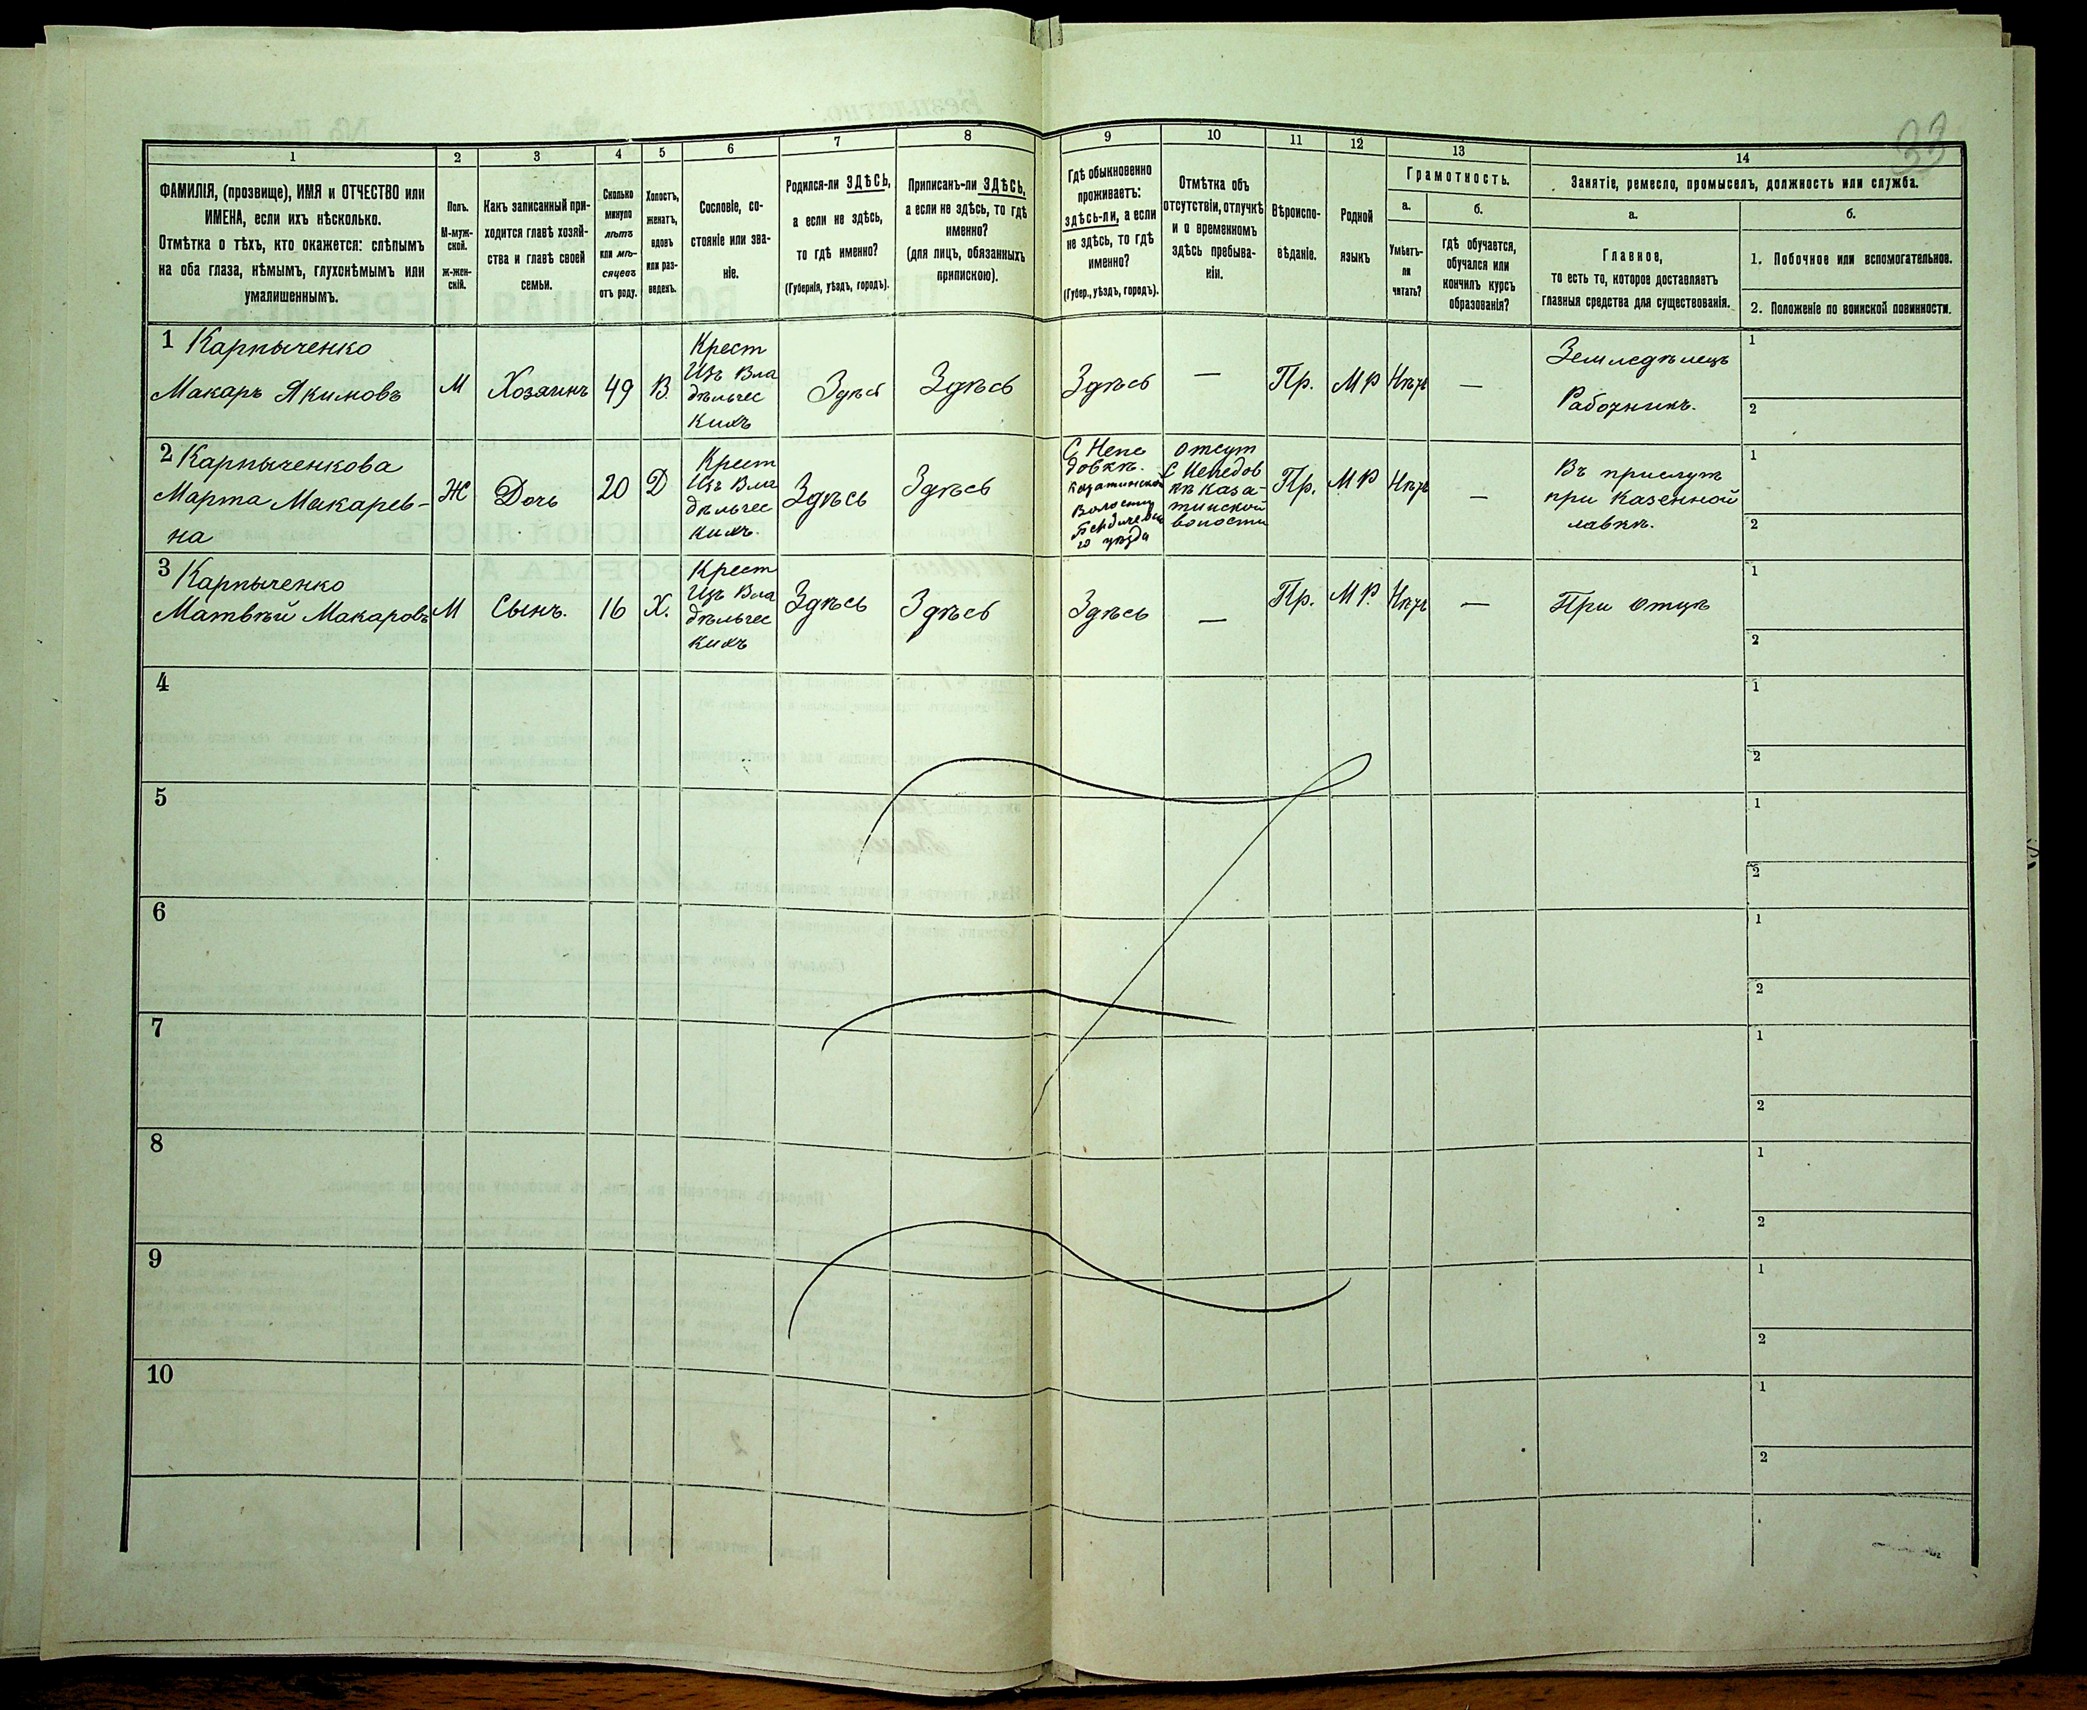 33
1
2
3
4
5
6
7
8
9
10
11
12
13
14
ФАМИЛІЯ, (прозвище), ИМЯ и ОТЧЕСТВО или
ИМЕНА, если ихъ нѣсколько.
Отмѣтка о тѣхъ, кто окажется: слѣпымъ
на оба глаза, нѣмымъ, глухонѣмымъ или
умалишеннымъ.
Полъ.
М-муж-
ской.
Ж-жен-
скій.
Какъ записанный при-
ходится главѣ хозяй-
ства и главѣ своей
семьи.
Сколько
минуло
лѣтъ
или мѣ-
сяцевъ
отъ роду.
Холостъ,
женатъ,
вдовъ
или раз-
веденъ.
Сословіе, со-
стояніе или зва-
ніе.
Родился-ли ЗДѢСЬ,
а если не здѣсь,
то гдѣ именно?
(Губернія, уѣздъ, городъ).
Приписанъ-ли ЗДѢСЬ,
а если не здѣсь, то гдѣ
именно?
(для лицъ, обязанныхъ
припискою).
Гдѣ обыкновенно
проживаетъ:
здѣсь-ли, а если
не здѣсь, то гдѣ
именно?
(Губер., уѣздъ, городъ).
Отмѣтка объ
отсутствіи, отлучкѣ
и о временномъ
здѣсь пребыва-
ніи.
Вѣроиспо-
вѣданіе.
Родной
языкъ
Грамотность.
а.
Умѣетъ-
ли
читать?
б.
Гдѣ обучается,
обучался или
кончилъ курсъ
образованія?
Занятіе, ремесло, промыселъ, должность или служба.
а.
Главное,
то есть то, которое доставляетъ
главныя средства для существованія.
б.
1. Побочное или вспомогательное.
2. Положеніе по воинской повинности.
1 Карпыченко
Макаръ Якимовъ
М
Хозяинъ
49
В.
Крест
Изъ Вла
дѣльчес
кихъ
Здѣсь
Здѣсь
Здѣсь
—
Пр.
МР
Нѣтъ
—
Земледѣлецъ
Работникъ.
1
2
2 Карпыченкова
Марта Макарев-
на
Ж
Дочь
20
Д
Крест
Изъ Вла
дѣльчес
кихъ.
Здѣсь
Здѣсь
С Непе
довкѣ.
Козатинской
Волости
Бердичевск
го уѣзда
отсут
С Непедов
кѣ Каза-
тинской
волости
Пр.
МР
Нѣтъ
—
Въ прислугѣ
при Казенной
лавкѣ.
1
2
3 Карпыченко
Матвѣй Макаровъ
М
Сынъ.
16
Х.
Крест
Изъ Вла
дѣльчес
кихъ
Здѣсь
Здѣсь
Здѣсь
—
Пр.
МР.
Нѣтъ
—
При отцѣ
1
2
4
1
2
5
1
2
6
1
2
7
1
2
8
1
2
9
1
2
10
1
2